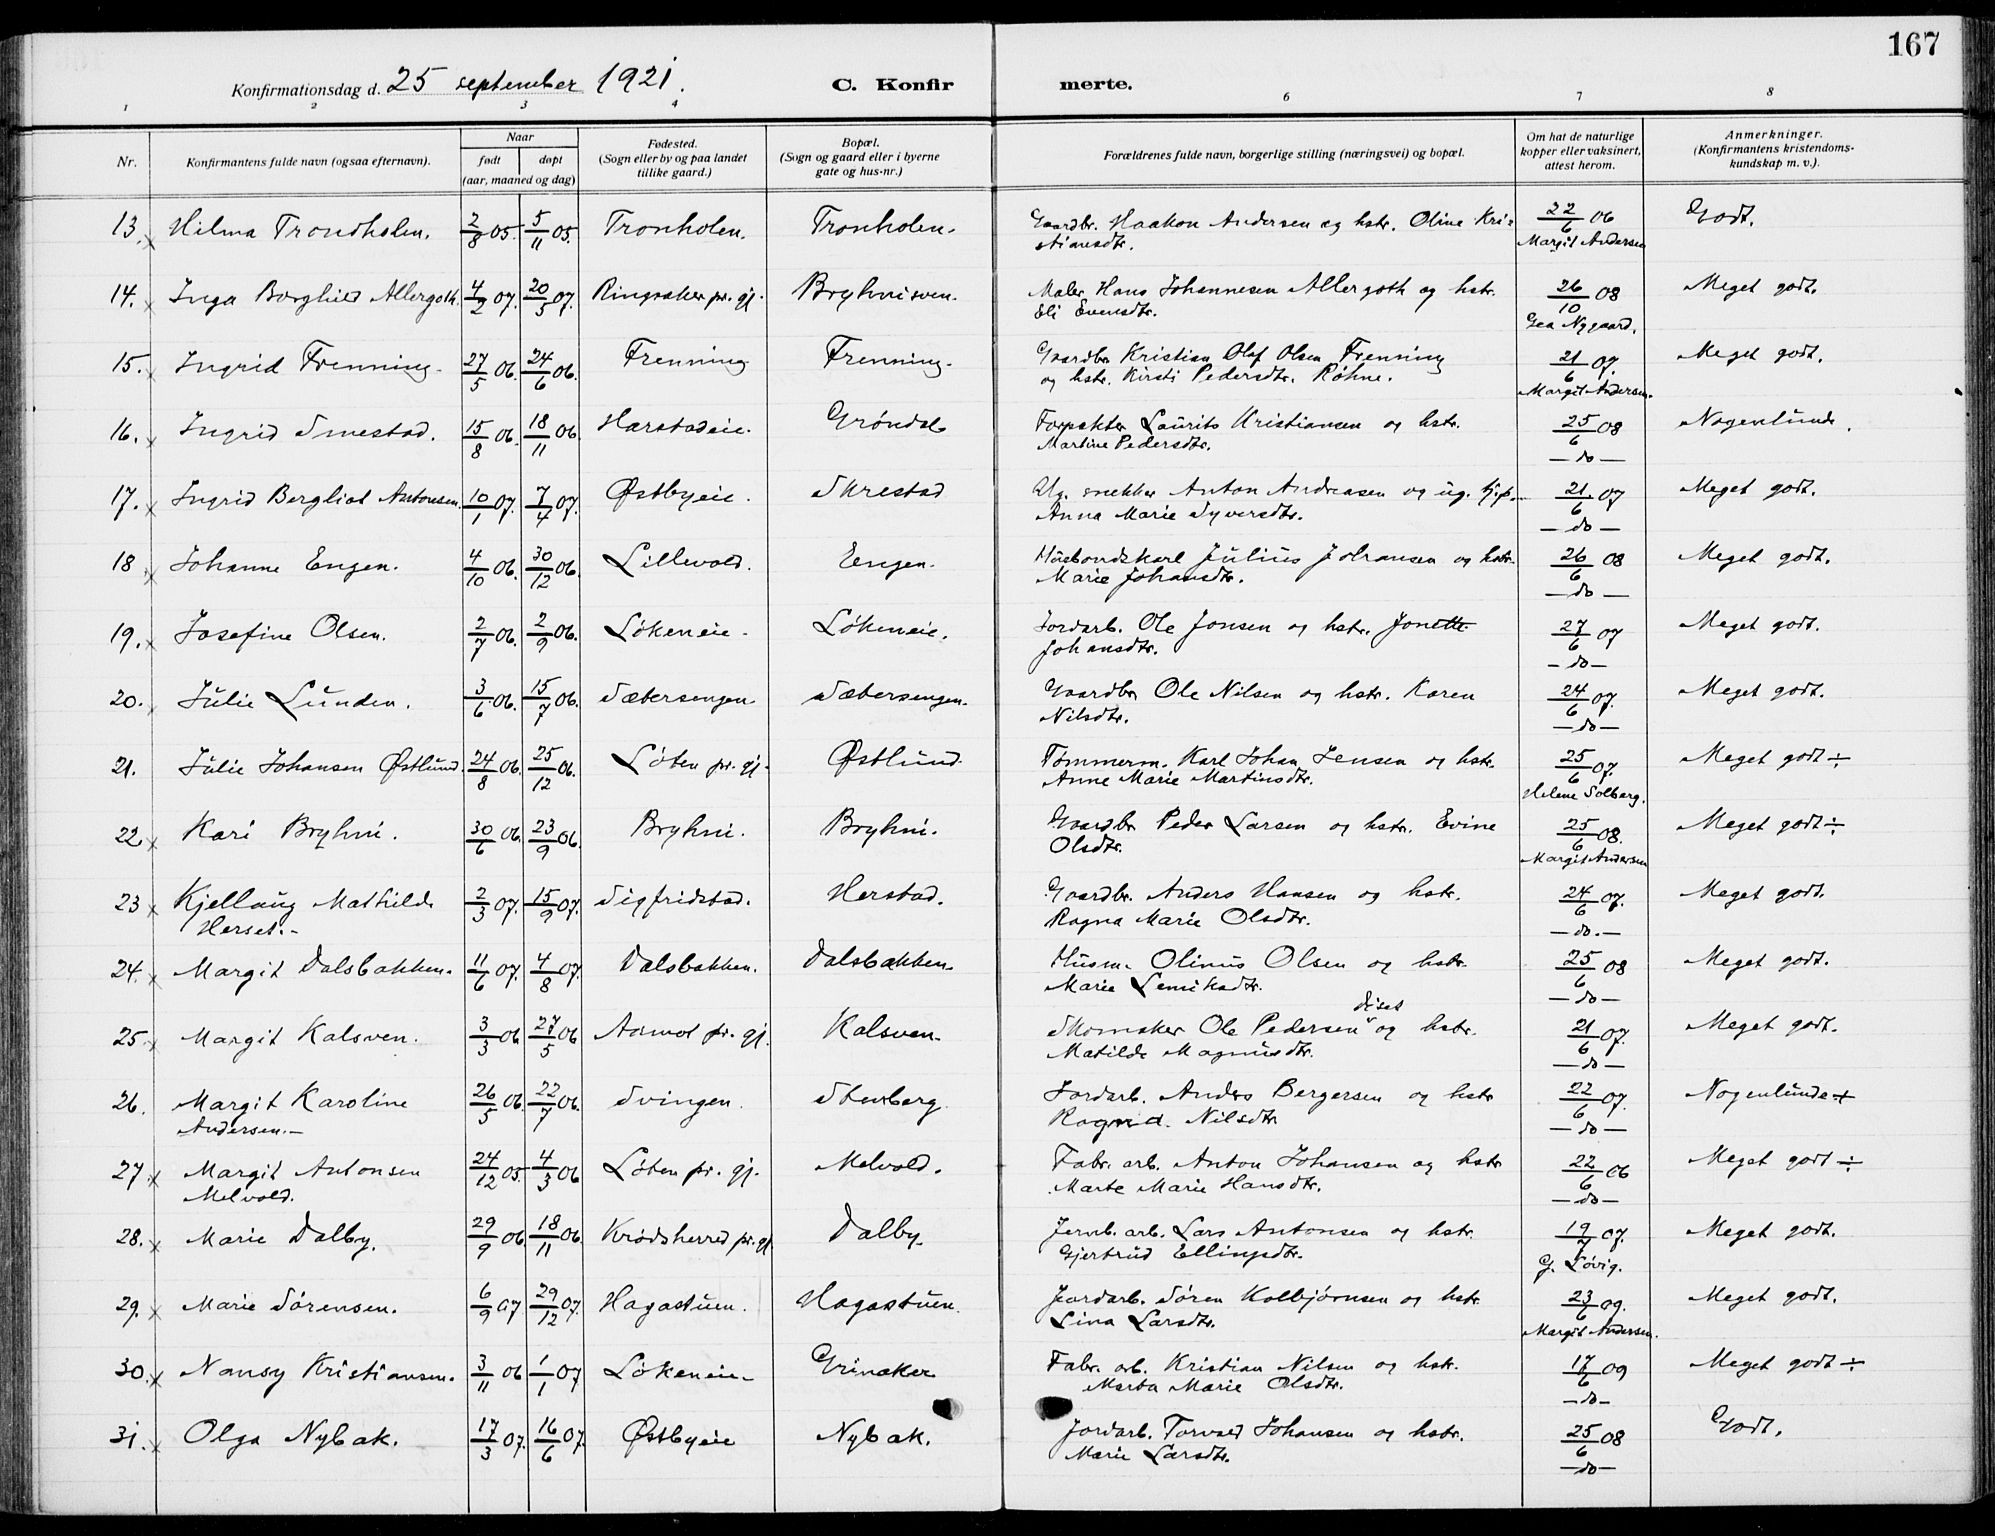 167
Konfirmationsdag d. 25 september 1921. C. Konfirmerte.
1 2 3 4 6 7 8
Nr. Konfirmantens fulde navn (ogsaa efternavn). Naar født døpt (aar, maaned og dag) Fødested. (Sogn eller by og paa landet tillike gaard.) Bopæl. (Sogn og gaard eller i byerne gate og hus-nr.) Forældrenes fulde navn, borgerlige stilling (næringsvei) og bopæl. Om hat de naturlige kopper eller vaksinert, attest herom. Anmerkninger. (Konfirmantens kristendomskundskap m. v.).
13. Hilma Trondholen. 2/8 05. 5/11 05. Tronholen. Tronholen. Gaardbr. Haakon Andersen og hstr. Oline Kri- 22/6 06 Godt.
stiansdtr. Margit Andersen
14. Inga Borghild Allergoth. 4/2 07. 20/5 07. Ringsaker pr. gj. Bryhnisven. Maler Hans Johannesen Allergoth og hstr. 26/10 08 Meget godt.
Eli Evensdtr. Gea Nygaard.
15. Ingrid Frenning. 27/5 06. 24/6 06. Frenning Frenning. Gaardbr. Kristian Olaf Olsen Frenning 21/6 07. Meget godt.
og hstr. Kirsti Pedersdtr. Røhne. Margit Andersen.
16. Ingrid Smestad. 15/8 06. 18/11 06. Harstadeie. Grøndal Forpakter Laurits Kristiansen og hstr. 25/6 08 Nogenlunde.
Martine Pedersdtr. — do —
17. Ingrid Bergliot Antonsen. 10/1 07. 7/4 07. Østbyeie. Skrestad Ug. snekker Anton Andreasen og ug. tj.p. 21/6 07 Meget godt.
Anna Marie Syversdtr. — do —
18. Johanne Engen. 4/10 06. 30/12 06. Lillevold. Engen. Husbondskarl Julius Johansen og hstr. 26/6 08 Meget godt.
Marie Johansdtr. — do —
19. Josefine Olsen. 2/7 06. 2/9 06. Løkeneie. Løkeneie. Jordarb. Ole Jonsen og hstr. Jonette 27/6 07 Meget godt.
Johansdtr. — do —
20. Julie Lunden. 3/6 06. 15/7 06. Sætersengen. Sætersengen. Gaardbr. Ole Nilsen og hstr. Karen 24/6 07. Meget godt.
Nilsdtr. — do —
21. Julie Johansen Østlund. 24/8 06. 25/12 06. Løten pr. gj. Østlund. Tømmerm. Karl Johan Jensen og hstr. 25/6 07. Meget godt ÷
Anne Marie Martinsdtr. Helene Solberg.
22 Kari Bryhni. 30/6 06. 23/9 06. Bryhni. Bryhni. Gaardbr. Peder Larsen og hstr. Evine 25/6 08. Meget godt ÷
Olsdtr. Margit Andersen
23 Kjellaug Mathilde 2/3 07. 15/9 07. Sigfridstad. Herstad. Gaardbr. Anders Hansen og hstr. 24/6 07. Meget godt.
Herset.- Ragna Marie Olsdtr. — do. —
24. Margit Dalsbakken. 11/6 07. 4/8 07. Dalsbakken. Dalsbakken. Husm. Olinus Olsen og hstr. 25/6 08 Meget godt.
Marie Lenikadtr. — do —
25. Margit Kalsven. 3/3 06 27/5 06 Aamot pr. gj. Kalsven. Skomaker Ole Pedersen Diset og hstr. 21/6 07. Meget godt.
Matilde Magnusdtr. — do —
26. Margit Karoline 26/5 06. 22/7 06. Svingen. Stenberg. Jordarb. Anders Bergersen og hstr 22/6 07. Nogenlunde +
Andersen.- Nilsdtr — do —
27. Margit Antonsen 24/12 05. 4/3 06 Løten pr. gj. Melvold. Fabr. arb. Anton Johansen og hstr 22/6 06 Meget godt ÷
Melvold. Marte Marie Hansdtr. — do —
28. Marie Dalby. 29/9 06. 18/11 06. Krødsherred pr. gj Dalby. Jernb. arb. Lars Antonsen og hstr. 19/7 07. Meget godt.
Gjertrud Ellingsdtr. G. Løvig.
29. Marie Sørensen. 6/9 07 29/12 07. Hagastuen. Hagastuen. Jordarb. Søren Kolbjørnsen og hstr 23/6 09. Meget godt.
Lina Larsdtr. Margit Andersen.
30. Nansy Kristiansen. 3/11 06 1/1 07 Løkeneie. Grinaker Fabr. arb. Kristian Nilsen og hstr. 17/6 09 Meget godt ÷
Marta Marie Olsdtr. — do —
31. Olga Nybak. 17/3 07. 16/6 07. Østbyeie Nybak. Jordarb. Torvald Johansen og hstr. 25/6 08 Godt.
Marie Larsdtr. — do —